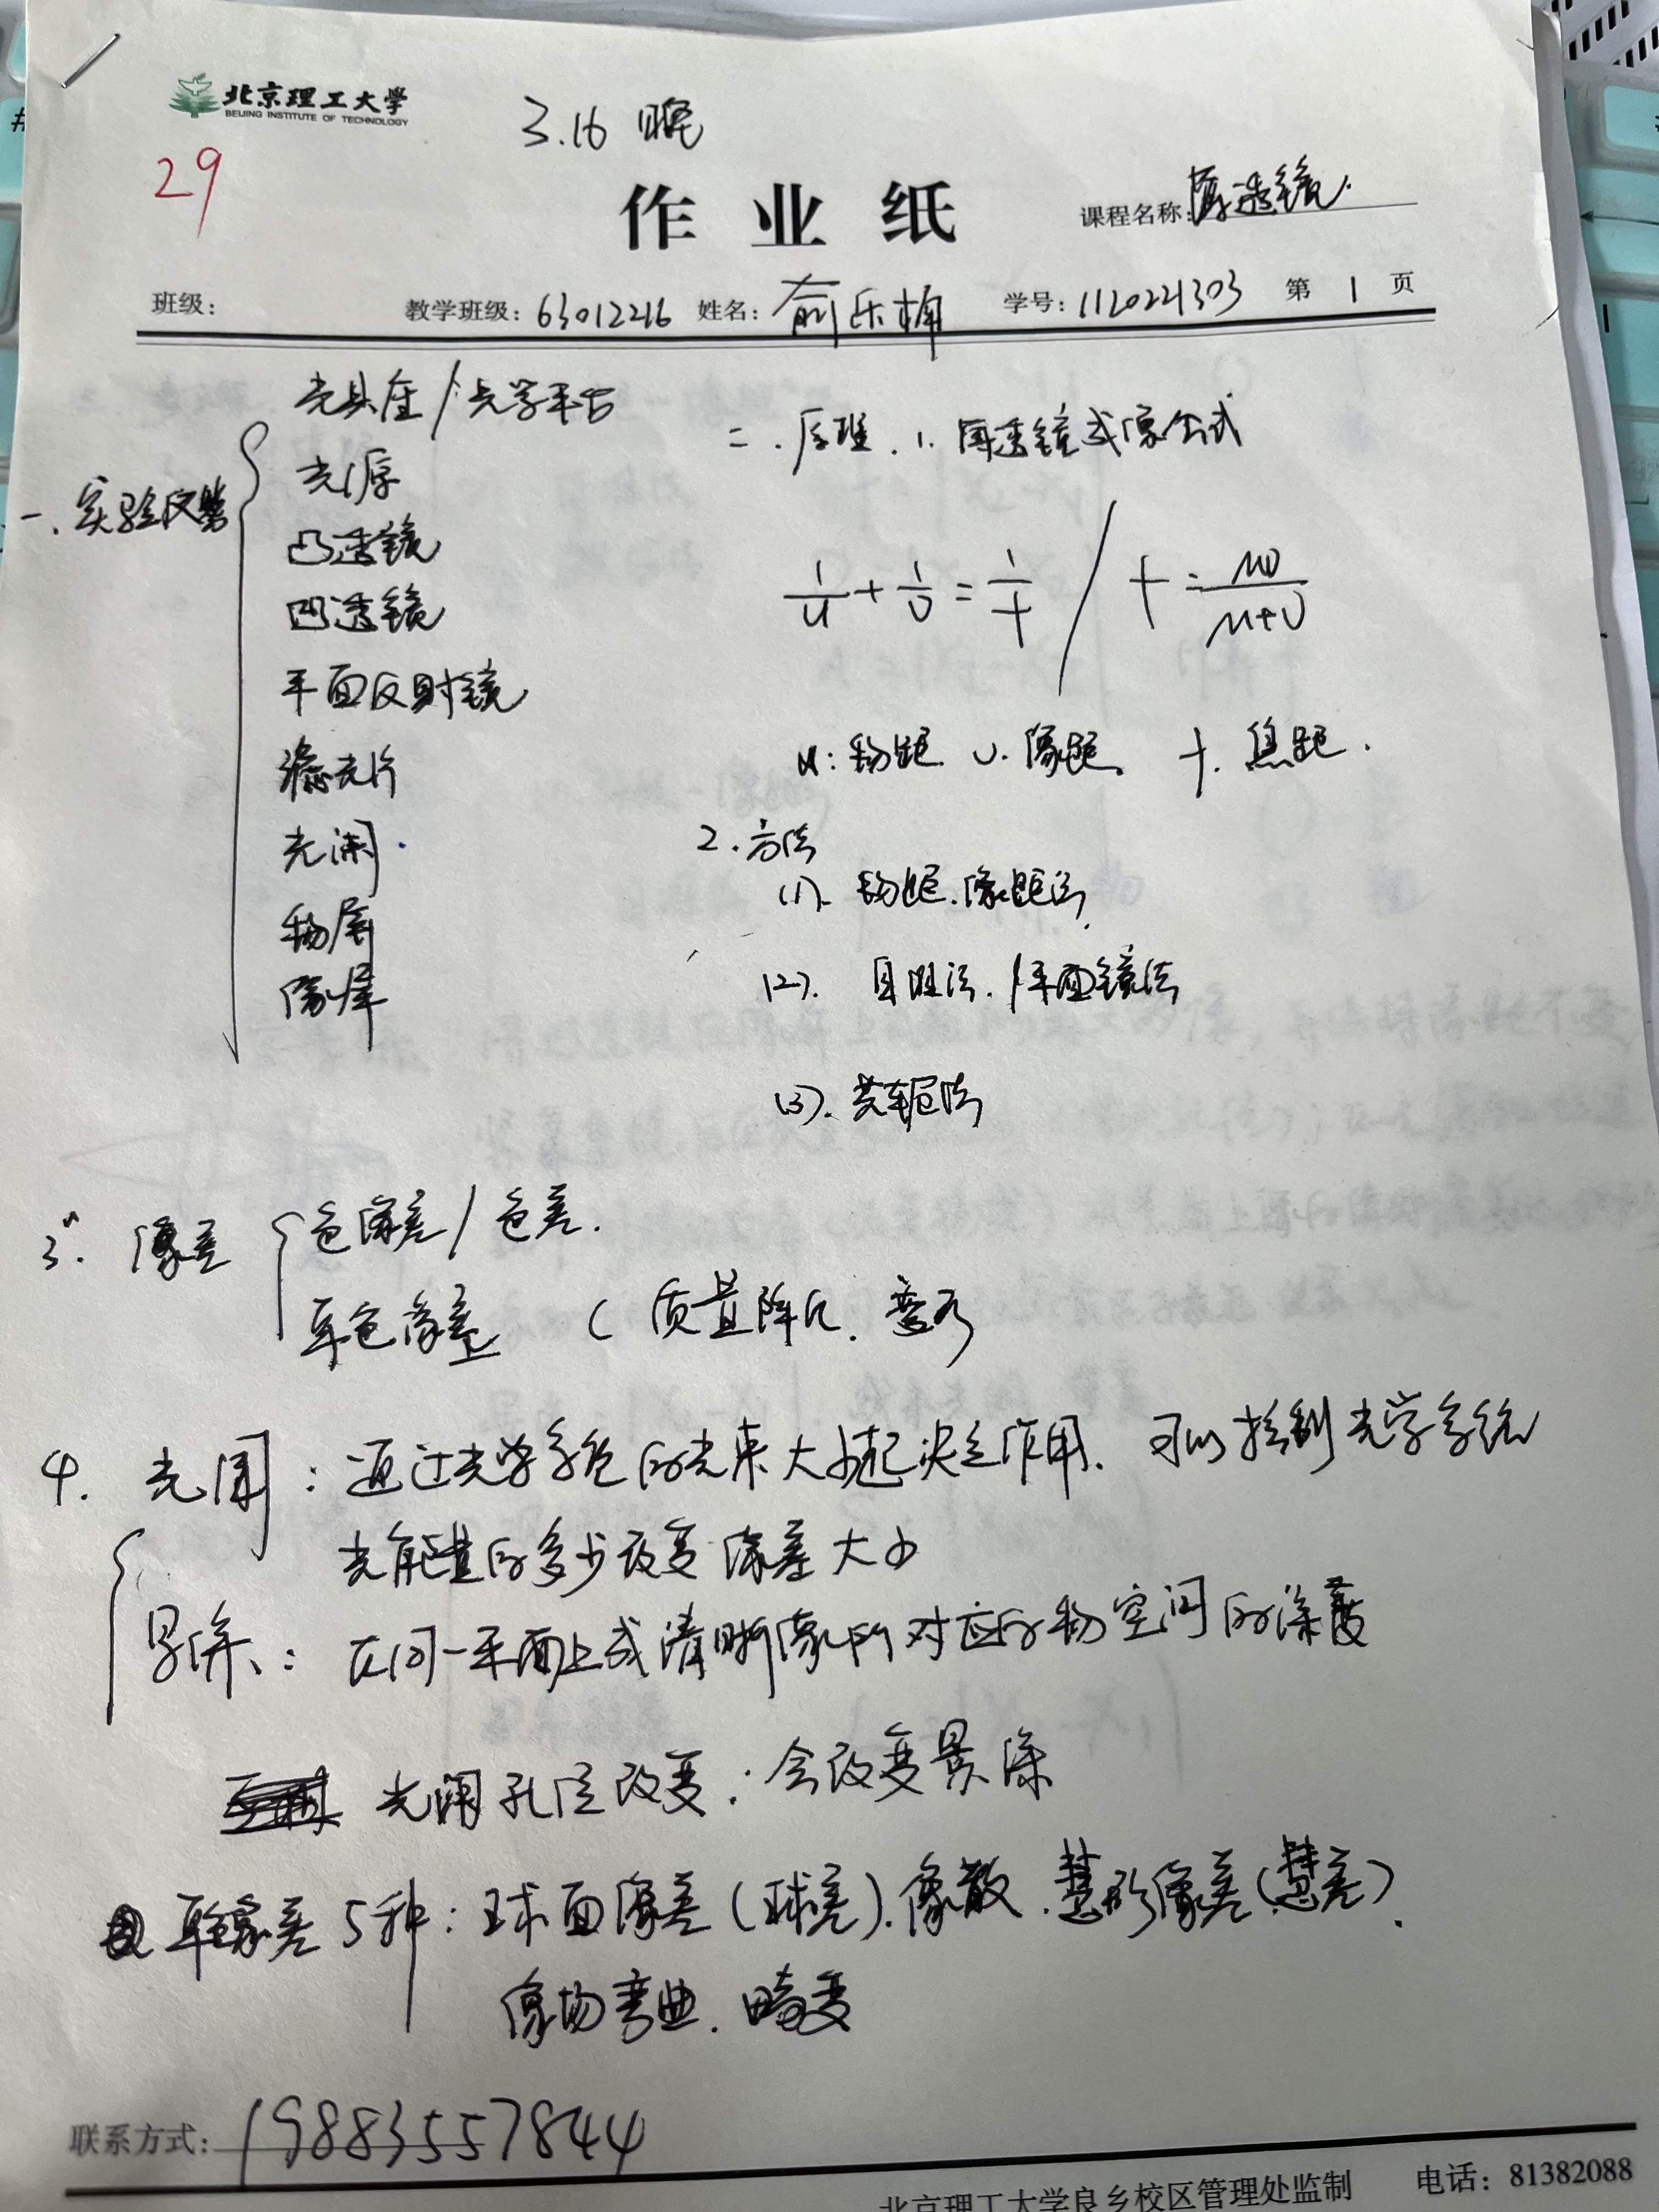 北京理工大学
BEIJING INSTITUTE OF TECHNOLOGY
3.16 晚
29
作业纸
课程名称: 薄透镜
班级:
教学班级: 63012216 姓名: 俞乐楠 学号: 1120221303 第 1 页
一、实验仪器
光具座/光学平台
光源
凸透镜
凹透镜
平面反射镜
滤光片
光阑
物屏
像屏
二、原理、1. 薄透镜成像公式
1/u + 1/v = 1/f / f = uv/u+v
u: 物距 v. 像距. f. 焦距.
2. 方法
(1). 物距.像距法
(2). 自准法./平面镜法
(3). 共轭法
3. 像差
色像差/色差.
单色像差 ( 质量降低. 变形
4. 光阑: 通过光学系统的光束大小起决定作用. 可以控制光学系统
光能量的多少改变像差大小
景深: 在同一平面上成清晰像所对应的物空间的深度
光阑孔径改变: 会改变景深
单色像差5种: 球面像差(球差).像散.慧形像差(慧差).
像场弯曲. 畸变
联系方式: 19883557844
北京理工大学良乡校区管理处监制 电话: 81382088